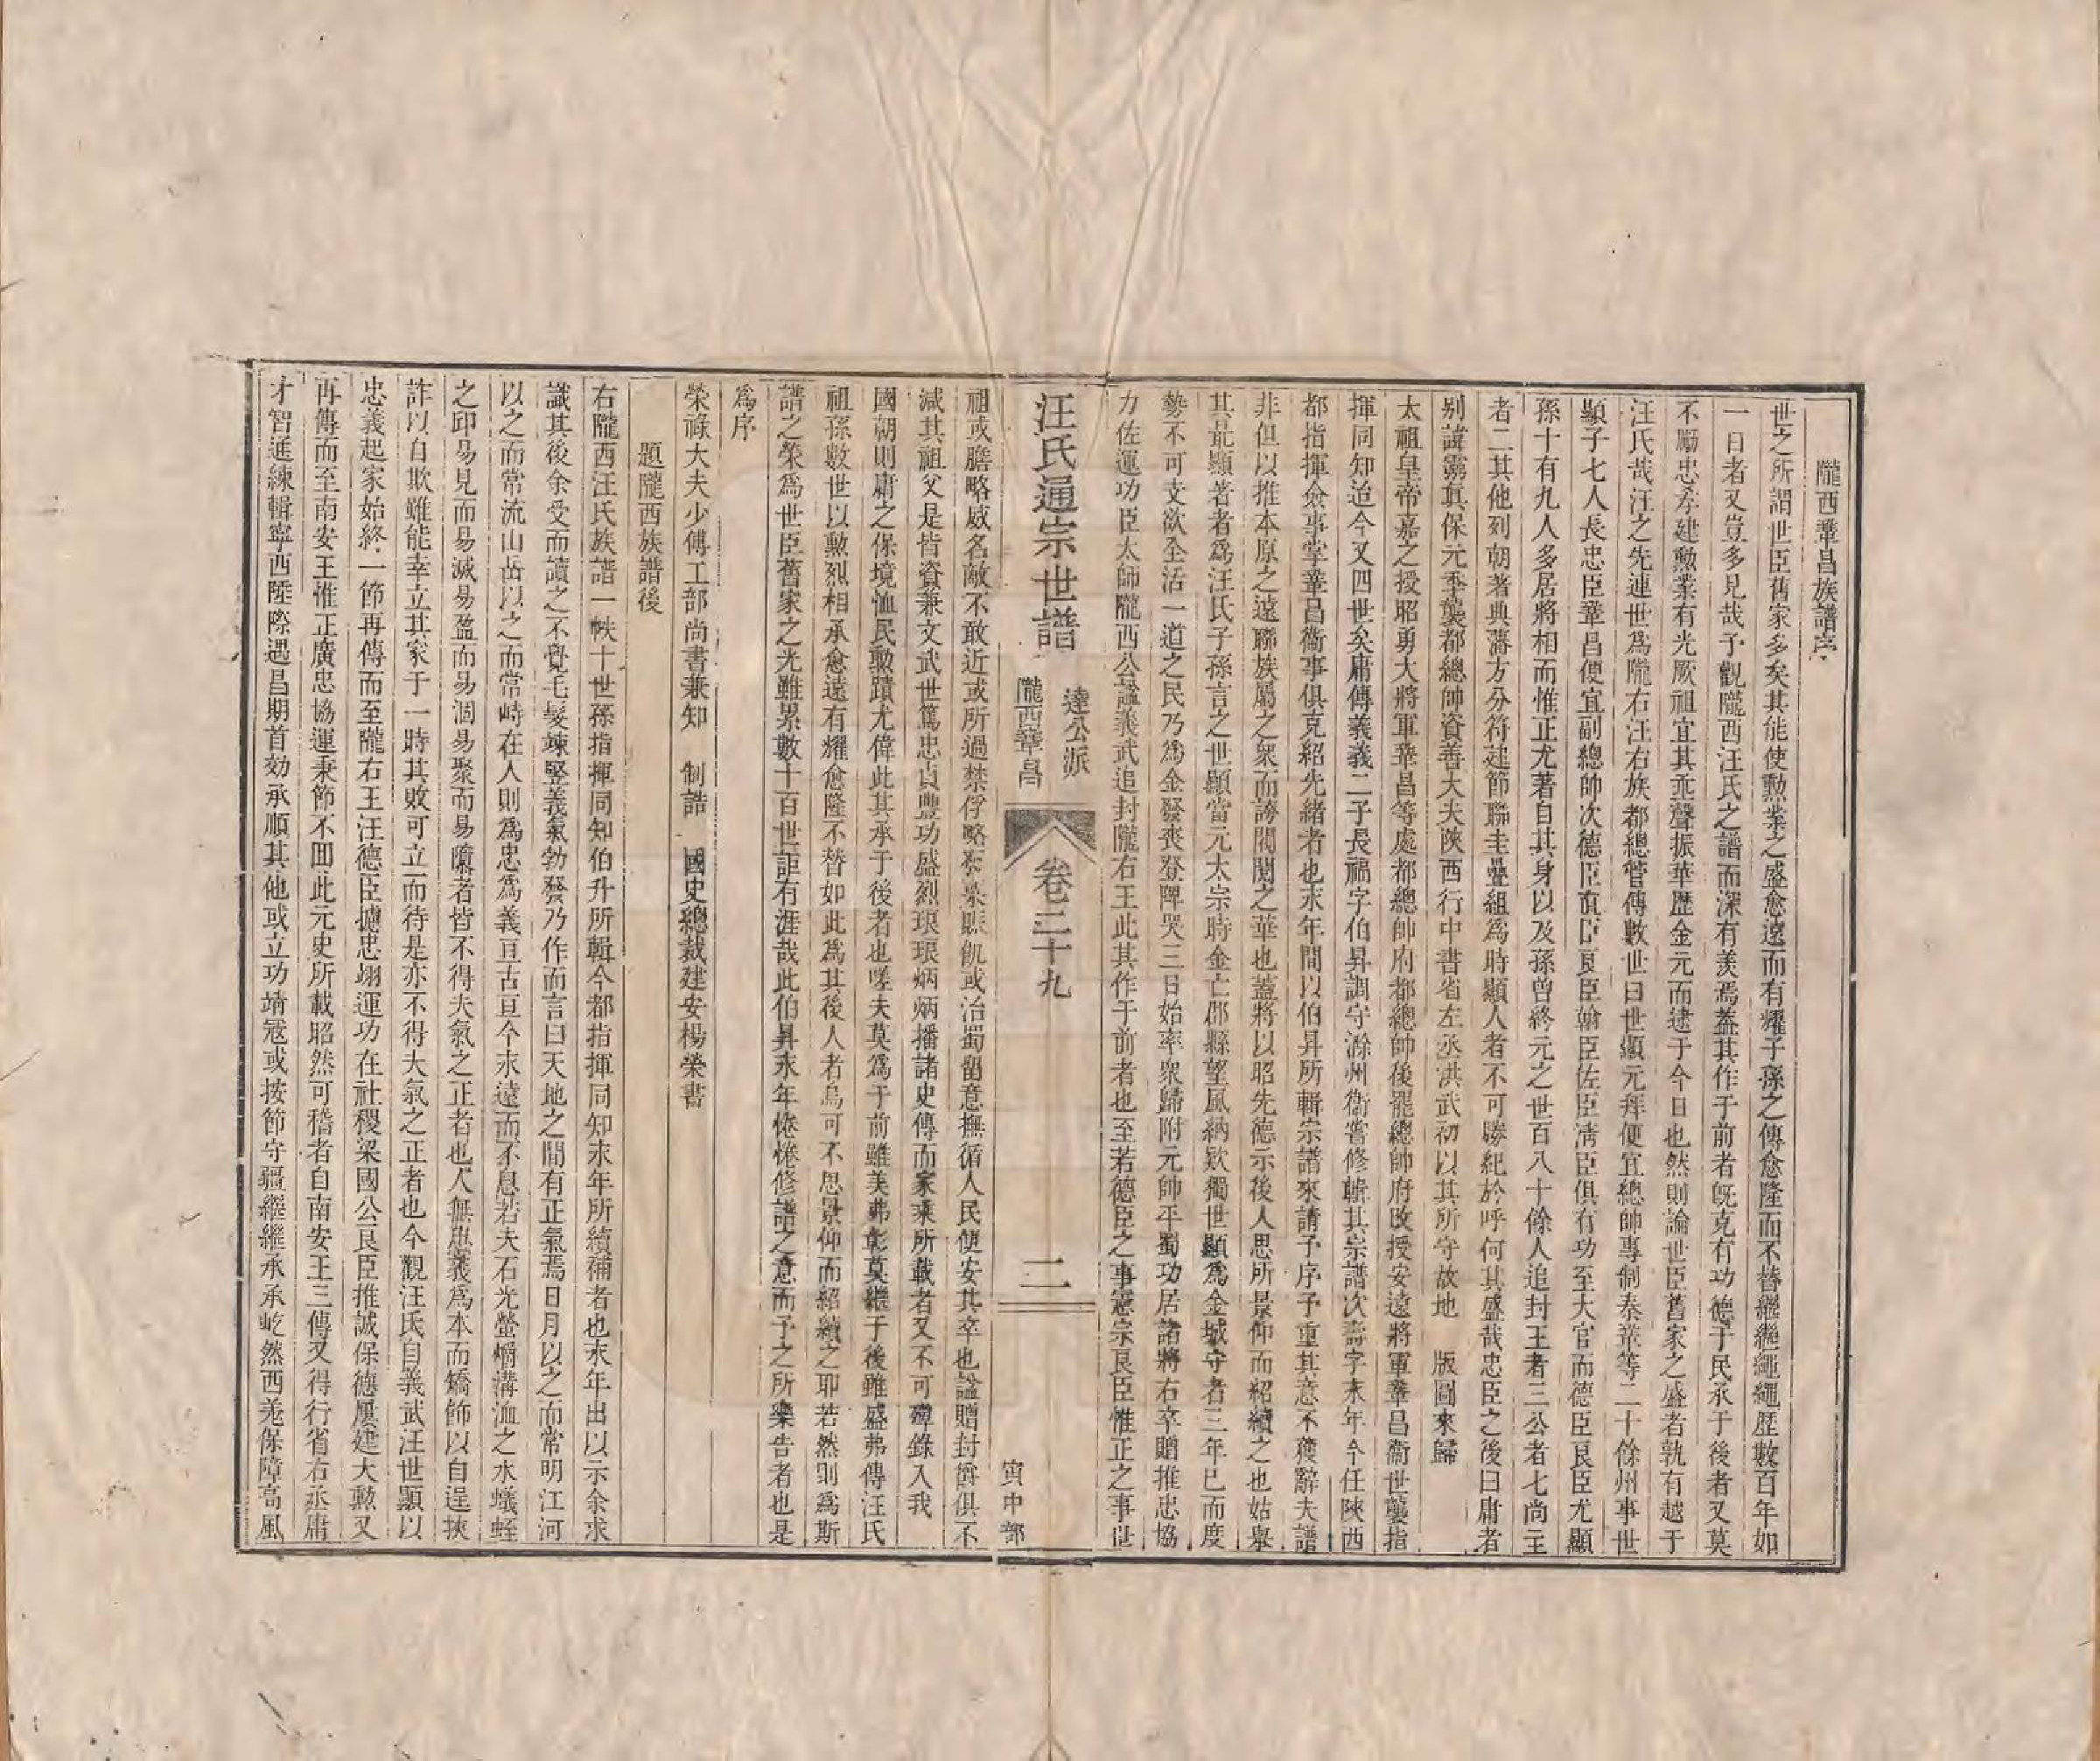 隴西鞏昌族譜序
世之所謂世臣舊家多矣其能使勲業之盛愈遠而有耀子孫之傳愈隆而不替繼繼繩繩歷數百年如
一日者又豈多見哉予觀隴西汪氏之譜而深有羡焉蓋其作于前者旣克有功德于民承于後者又莫
不勵忠孝建勲業有光厥祖宜其垂聲振華歷金元而逮于今日也然則論世臣舊家之盛者孰有越于
汪氏哉汪之先連世爲隴右汪古族都總管傳數世曰世顯元拜便宜總帥專制秦鞏等二十餘州事世
顯子七人長忠臣鞏昌便宜副總帥次德臣直臣良臣翰臣佐臣淸臣俱有功至大官而德臣良臣尤顯
孫十有九人多居將相而惟正尤著自其身以及孫曾終元之世百八十餘人追封王者三公者七尚主
者二其他列朝著典藩方分符建節聯圭疊組爲時顯人者不可勝紀於呼何其盛哉忠臣之後曰庸者
别諱靈眞保元季襲都總帥資善大夫陝西行中書省左丞洪武初以其所守故地　版圖來歸
太祖皇帝嘉之授昭勇大將軍鞏昌等處都總帥府都總帥後罷總帥府改授安遠將軍鞏昌衞世襲指
揮同知迨今又四世矣庸傳義義二子長福字伯昇調守滁州衞嘗修輯其宗譜次壽字永年今任陝西
都指揮僉事掌鞏昌衞事俱克紹先緒者也永年間以伯昇所輯宗譜來請予序予重其意不獲辭夫譜
非但以推本原之遠聯族屬之衆而誇閥閱之華也蓋將以昭先德示後人思所景仰而紹續之也姑舉
其最顯著者爲汪氏子孫言之世顯當元太宗時金亡郡縣望風納欵獨世顯爲金城守者三年已而度
勢不可支欲全活一道之民乃爲金發喪登陴哭三日始率衆歸附元帥平蜀功居諸將右卒贈推忠協
力佐運功臣太師隴西公諡義武追封隴右王此其作于前者也至若德臣之事憲宗良臣惟正之事世
汪氏通宗世譜
達公派
隴西鞏昌
卷二十九
二
寅中部
祖或膽略威名敵不敢近或所過禁俘略寒梁賑飢或治蜀留意撫循人民使安其卒也諡贈封爵俱不
减其祖父是皆資兼文武世篤忠貞豐功盛烈琅琅炳炳播諸史傳而家乘所載者又不可殫錄入我
國朝則庸之保境恤民勲蹟尤偉此其承于後者也嗟夫莫爲于前雖美弗彰莫繼于後雖盛弗傳汪氏
祖孫數世以勲烈相承愈遠有耀愈隆不替如此爲其後人者烏可不思景仰而紹續之耶若然則爲斯
譜之榮爲世臣舊家之光雖累數十百世詎有涯哉此伯昇永年惓惓修譜之意而予之所樂告者也是
爲序
榮祿大夫少傅工部尚書兼知　制誥　國史總裁建安楊榮書
題隴西族譜後
右隴西汪氏族譜一帙十世孫指揮同知伯升所輯今都指揮同知永年所續補者也永年出以示余求
識其後余受而讀之不覺毛髮竦竪義氣勃發乃作而言曰天地之間有正氣焉日月以之而常明江河
以之而常流山岳以之而常峙在人則爲忠爲義亘古亘今永遠而不息若夫石光螢爝溝洫之水蟻蛭
之印易見而易滅易盈而易涸易聚而易隳者皆不得夫氣之正者也人無忠義爲本而矯飾以自逞挾
詐以自欺雖能幸立其家于一時其敗可立而待是亦不得大氣之正者也今觀汪氏自義武汪世顯以
忠義起家始終一節再傳而至隴右王汪德臣攄忠翊運功在社稷梁國公良臣推誠保德屢建大勲又
再傳而至南安王惟正廣忠協運秉節不囬此元史所載昭然可稽者自南安王三傳又得行省右丞庸
才智進練輯寧西陲際遇昌期首効承順其他或立功靖寇或按節守疆繼繼承承屹然西羌保障高風